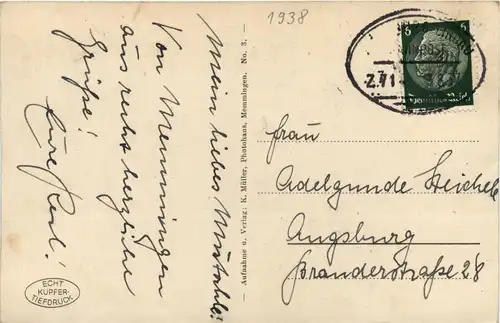 1938
Mein liebes Mustahle!
Von Memmingen
aus recht herzliche
Grüße!
Eure Resl!
Aufnahme u. Verlag: K. Müller, Photohaus, Memmingen. No. 3.
ECHT
KUPFER-
TIEFDRUCK
6 6
Deutsches Reich
Z.71
Frau
Adelgunde Heichele
Augsburg
Branderstraße 28